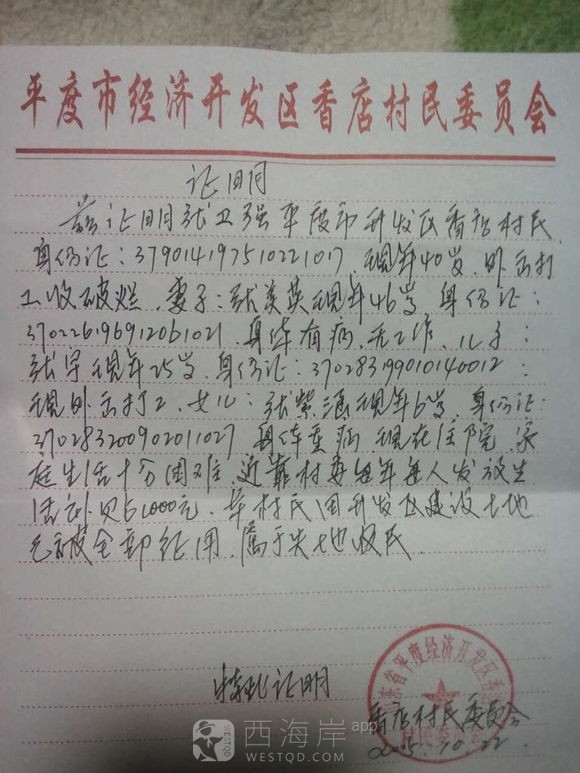 平度市经济开发区香店村民委员会
证明
兹证明张卫强平度市开发区香店村民
身份证：379014197510221017，现年40岁，外出打
工收破烂，妻子：张美英现年46岁，身份证：
370226196912061021，身体有病，无工作，儿子：
张宇现年25岁，身份证：370283199010140012，
现外出打工，女儿：张紫涵现年6岁，身份证：
370283200902011027 身体重病，现在住院，家
庭生活十分困难，近靠村委每年每人发放生
活补贴1000元，本村民因开发区建设土地
已被全部征用，属于失地农民
特此证明
香店村民委员会
2015.10.22
西海岸app
WESTQD.COM